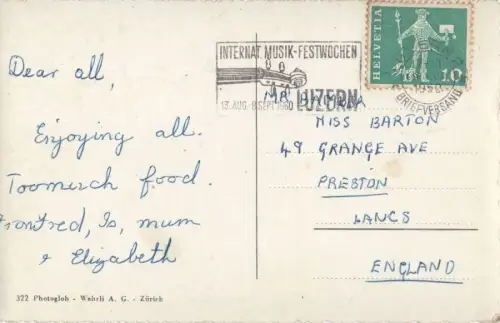 Dear all,
Enjoying all.
Toomuch food.
Is, mum
& Elizabeth
322 Photoglob - Wehrli A. G. - Zürich
INTERNAT. MUSIK-FESTWOCHEN
13. AUG. 8. SEPT. 1960 LUZERN
HELVETIA
10
BRIEFVERSAND
MR
MISS BARTON
49 GRANGE AVE
PRESTON
LANCS
ENGLAND